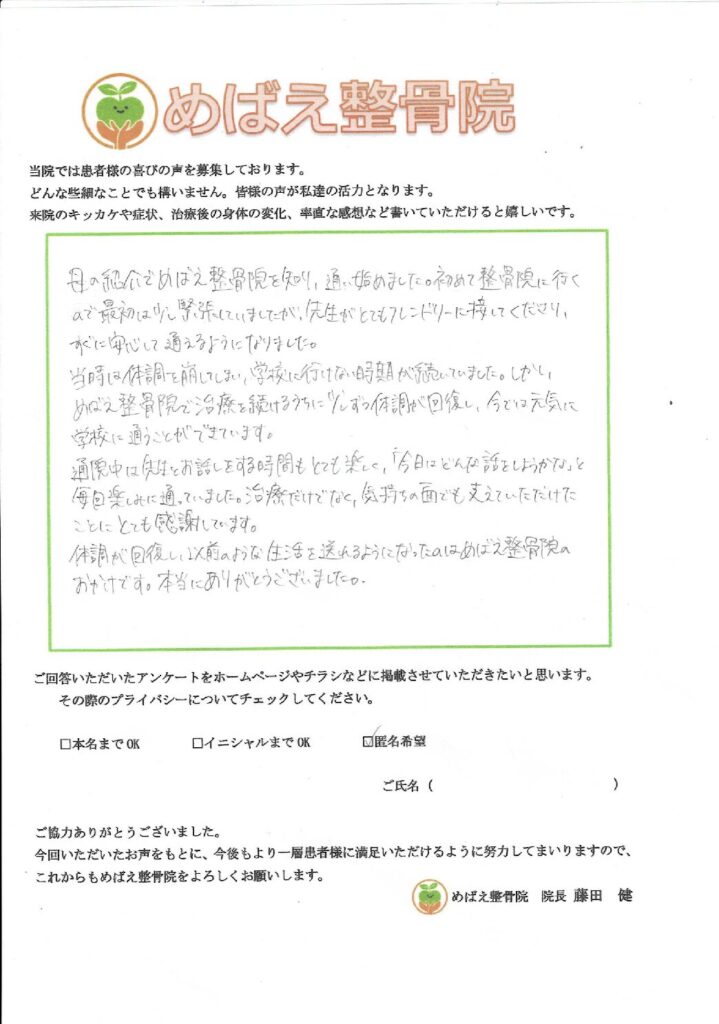 めばえ整骨院
当院では患者様の喜びの声を募集しております。
どんな些細なことでも構いません。皆様の声が私達の活力となります。
来院のキッカケや症状、治療後の身体の変化、率直な感想など書いていただけると嬉しいです。
母の紹介でめばえ整骨院を知り、通い始めました。初めて整骨院に行く
ので最初は少し緊張していましたが、先生がとてもフレンドリーに接してくださり、
すぐに安心して通えるようになりました。
当時は体調を崩してしまい、学校に行けない時期が続いていました。しかし、
めばえ整骨院で治療を続けるうちに少しずつ体調が回復し、今では元気に
学校に通うことができています。
通院中は先生とお話しをする時間もとても楽しく、「今日はどんな話をしようかな」と
毎回楽しみに通っていました。治療だけでなく、気持ちの面でも支えていただけた
ことにとても感謝しています。
体調が回復し、以前のような生活を送れるようになったのはめばえ整骨院の
おかげです。本当にありがとうございました。
ご回答いただいたアンケートをホームページやチラシなどに掲載させていただきたいと思います。
その際のプライバシーについてチェックしてください。
□本名までOK □イニシャルまでOK ☑匿名希望
ご氏名（ ）
ご協力ありがとうございました。
今回いただいたお声をもとに、今後もより一層患者様に満足いただけるように努力してまいりますので、
これからもめばえ整骨院をよろしくお願いします。
めばえ整骨院 院長 藤田 健